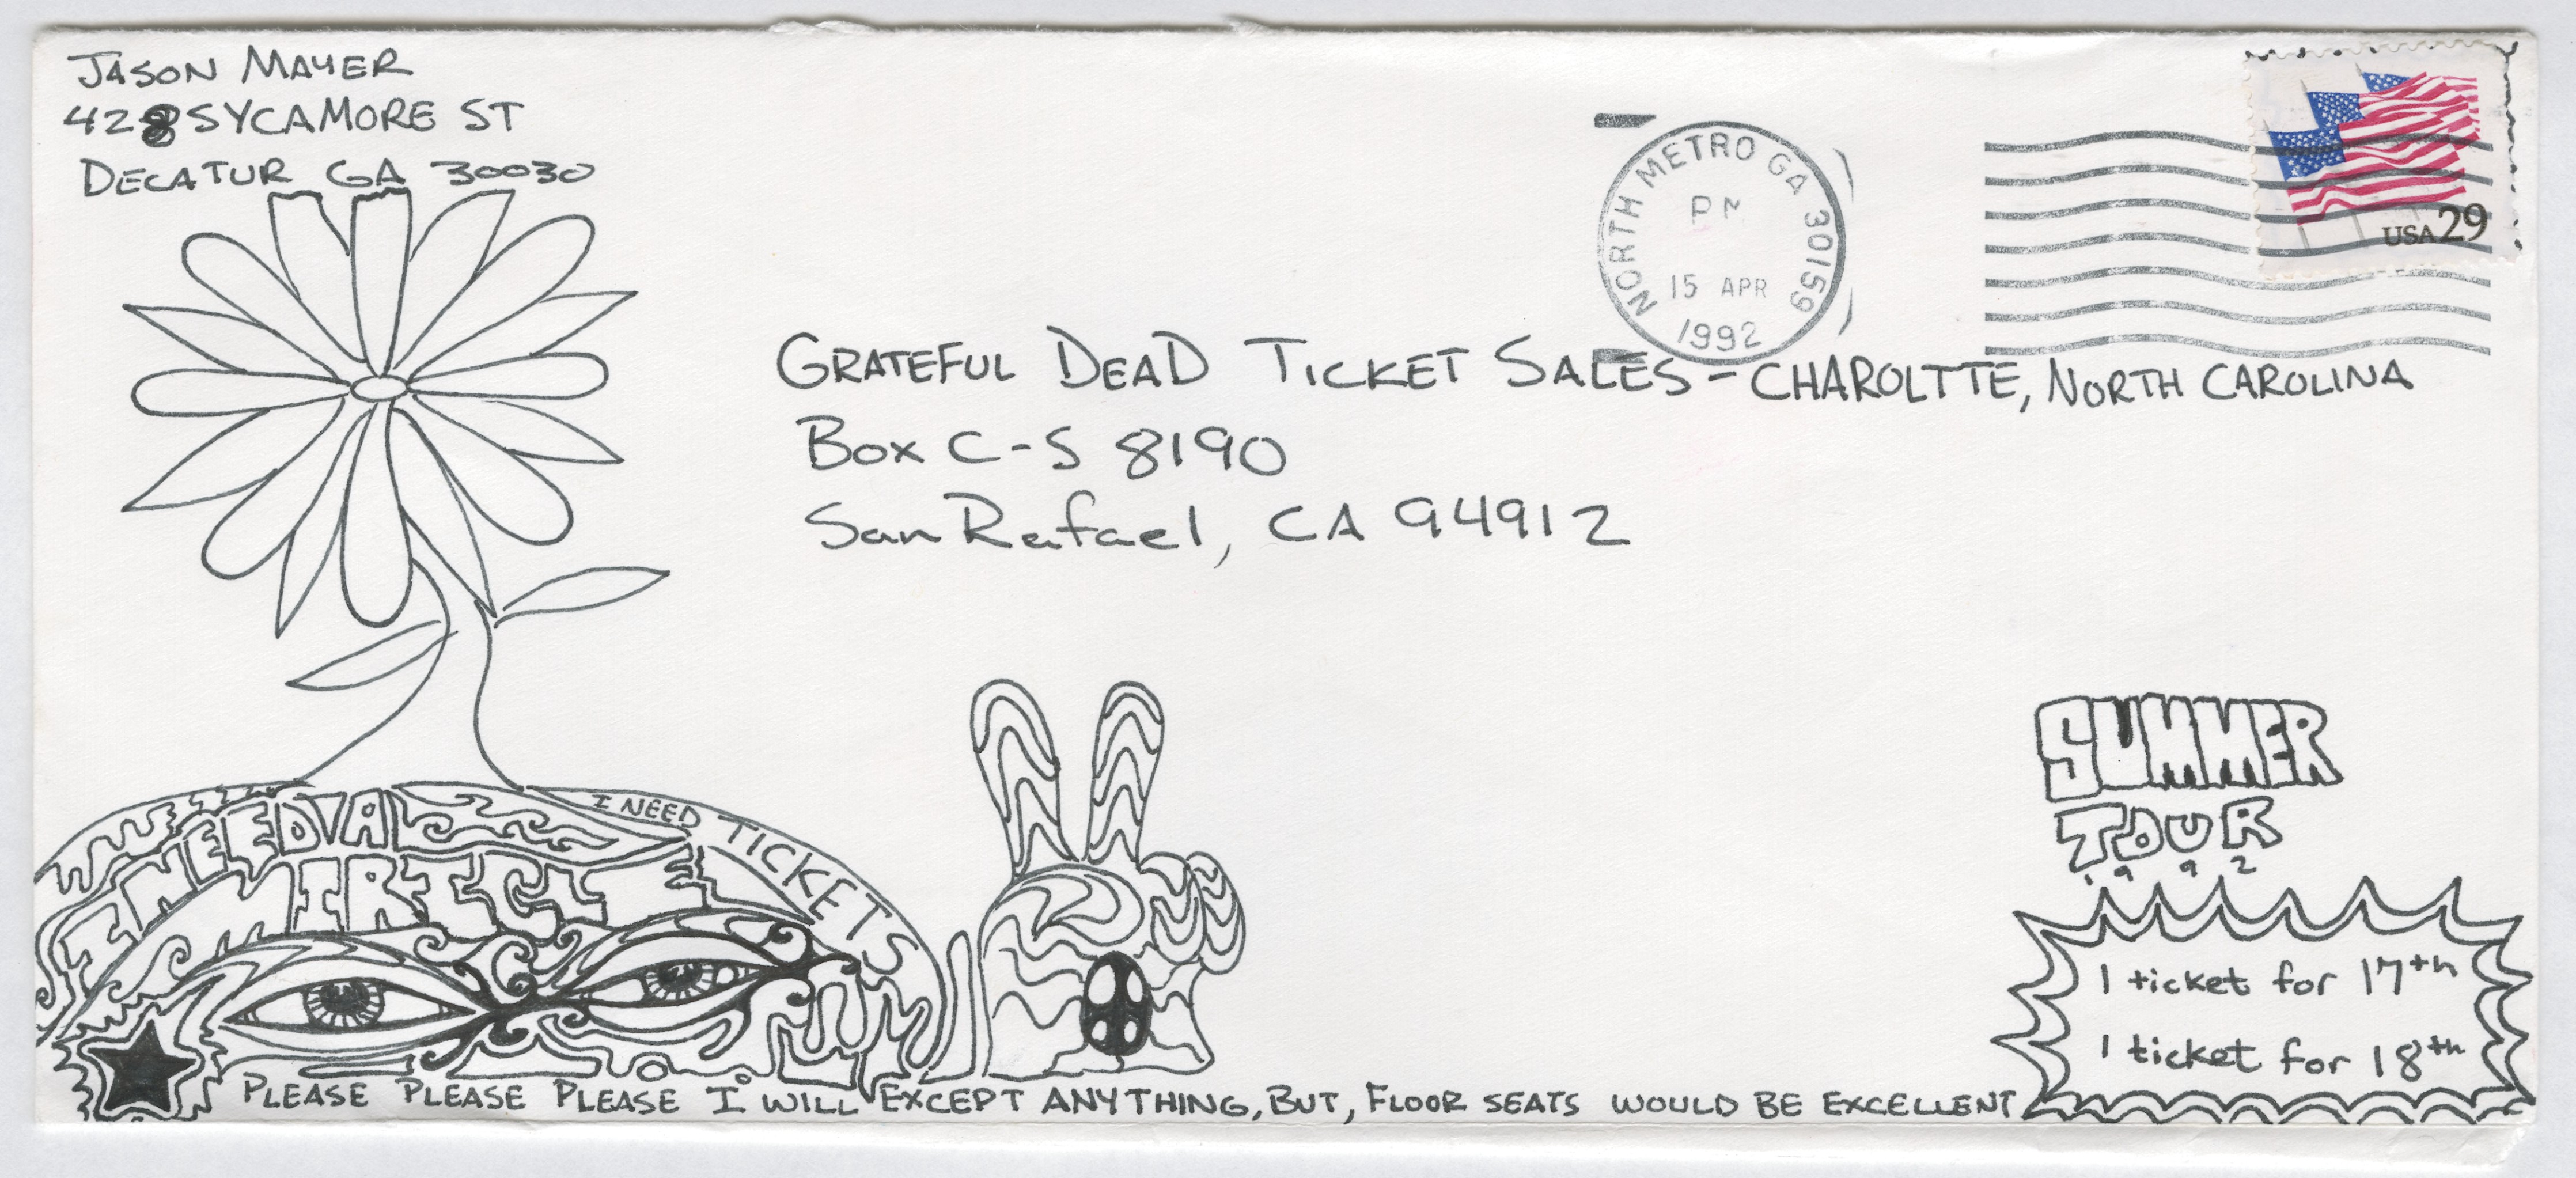 JASON MAYER
428 SYCAMORE ST
DECATUR GA 30030
NORTH METRO GA 30159
PM
15 APR
1992
USA 29
GRATEFUL DEAD TICKET SALES - CHAROLTTE, NORTH CAROLINA
Box C-S 8190
San Rafael, CA 94912
I NEED TICKETS
I NEED A
MIRICL
SUMMER
TOUR
1992
1 ticket for 17th
1 ticket for 18th
PLEASE PLEASE PLEASE I WILL EXCEPT ANYTHING, BUT, FLOOR SEATS WOULD BE EXCELLENT